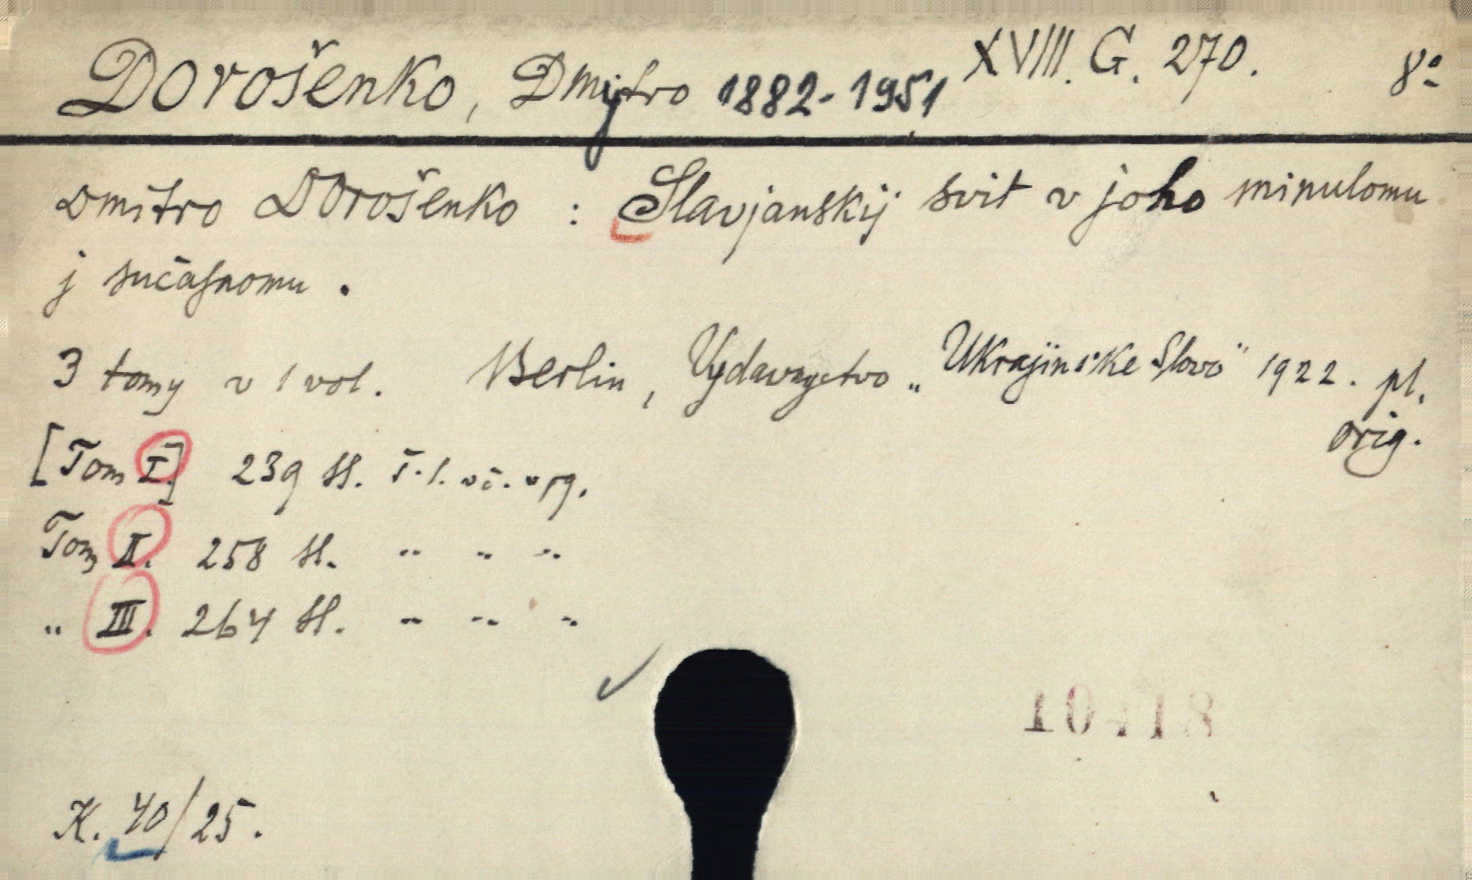 Dorošenko, Dmytro 1882-1951 XVIII. G. 270. 8°
Dmitro Dorošenko : Slavjanskij svit v joho minulomu
j sučasnomu .
3 tomy v 1 vol. Berlin, Vydavnyctvo „Ukrajinske Slovo" 1922. pl.
orig.
[Tom I.] 239 st. T. l. vč. v pg.
Tom II. 258 st. " " "
" III. 264 st. " " "
K. 40/25.